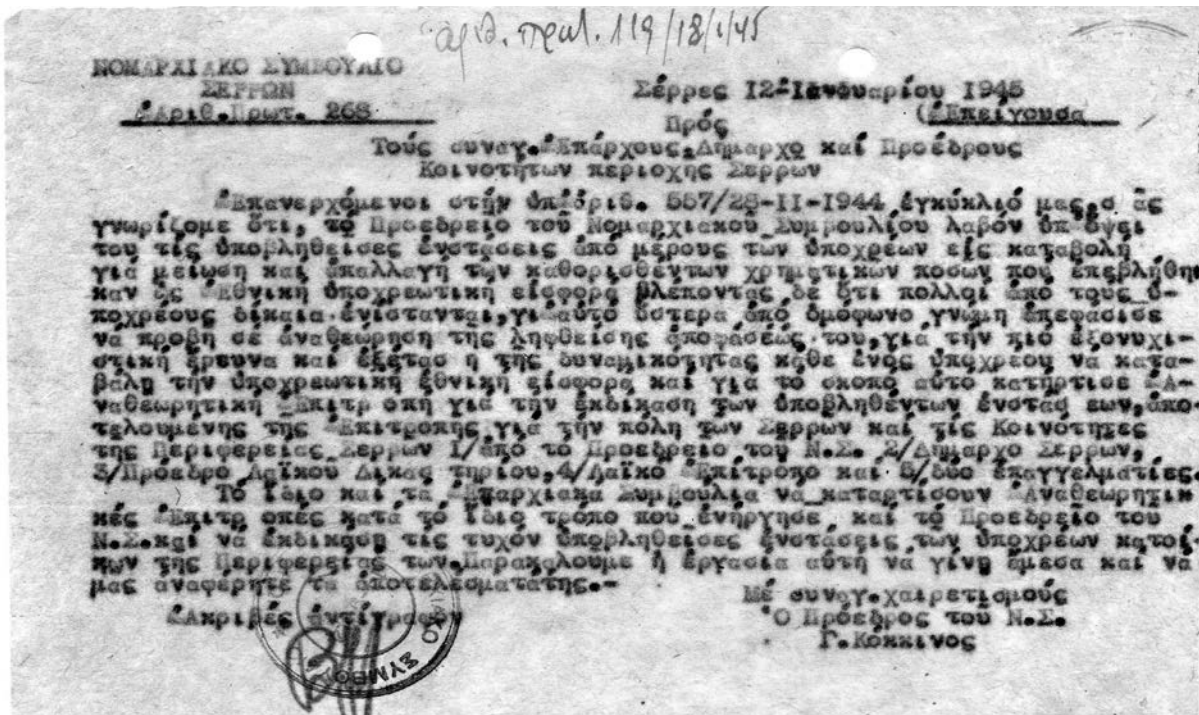 αριθ. πρωτ. 119/18/1/45
ΝΟΜΑΡΧΙΑΚΟ ΣΥΜΒΟΥΛΙΟ
ΣΕΡΡΩΝ
Ἀριθ.Πρωτ. 268
Σέρρες 12-Ιανουαρίου 1945
(Ἐπείγουσα
Πρός
Τούς συναγ.Ἐπάρχους,Δήμαρχο καί Προέδρους
Κοινοτήτων περιοχης Σερρων
Ἐπανερχόμενοι στήν ὑπ'ἀριθ. 557/28-II-1944 ἐγκύκλιό μας,σ ᾶς
γνωρίζομε ὅτι, τό Προεδρειο τοῦ Νομαρχιακοῦ Συμβουλίου λαβόν ὑπ ὄψει
του τίς ὑποβληθεισες ἐνστάσεις ἀπό μερους των ὑποχρεων είς καταβολη
γιά μειωση και ἀπαλλαγή των καθορισθέντων χρηματικων ποσων που ἐπεβλήθη
καν ὡς Ἐθνικη ὑποχρεωτικη είσφορα βλεποντας δε ὅτι πολλοι ἀπο τους ὑ-
ποχρέους δίκαια ἐνίστανται,γι αὐτό ὕστερα ἀπό ὁμόφωνο γνώμη ἀπεφάσισε
νά προβη σέ ἀναθεωρηση της ληφθεισης ἀποφάσεώς του,γιά τήν πιό ἐξονυχι-
στική ἔρευνα και ἐξέτασ η της δυναμικότητας κάθε ἐνός ὑποχρεου να κατα-
βάλη τήν ὑποχρεωτική ἐθνική είσφορα και γιά το σκοπό αὐτο κατήρτισε Ἀ-
ναθεωρητικη Ἐπιτρ οπη για την ἐκδικαση των ὑποβληθέντων ἐνστάσ εων,ἀπο
τελουμένης της Ἐπιτροπης για τήν πόλη των Σερρων και τίς Κοινότητες
της Περιφερειας Σερρων 1/ἀπό το Προεδρειο του Ν.Σ. 2/Δημαρχο Σερρων,
3/Πρόεδρο Λαϊκου Δικασ τηρίου,4/Λαϊκο Ἐπίτροπο και 5/δυο ἐπαγγελματίες.
Τό ίδιο και τα Ἐπαρχιακα Συμβουλια να καταρτίσουν Ἀναθεωρητικ
κές Ἐπιτρ οπές κατά τό ἴδιο τρόπο που ἐνήργησε και τό Προεδρείο του
Ν.Σ.και νά ἐκδικαση τίς τυχόν ὑποβληθεισες ἐνστάσεις των ὑποχρέων κατοί-
κων της Περιφερειας των.Παρακαλουμε ἡ ἐργασία αὐτή να γίνη ἄμεσα και να
μας αναφέρητε τα ἀποτελεσματατης.-
Μέ συναγ.χαιρετισμούς
Ἀκριβές ἀντίγραφον
Ὁ Πρόεδρος του Ν.Σ.
Γ.Κοκκινος